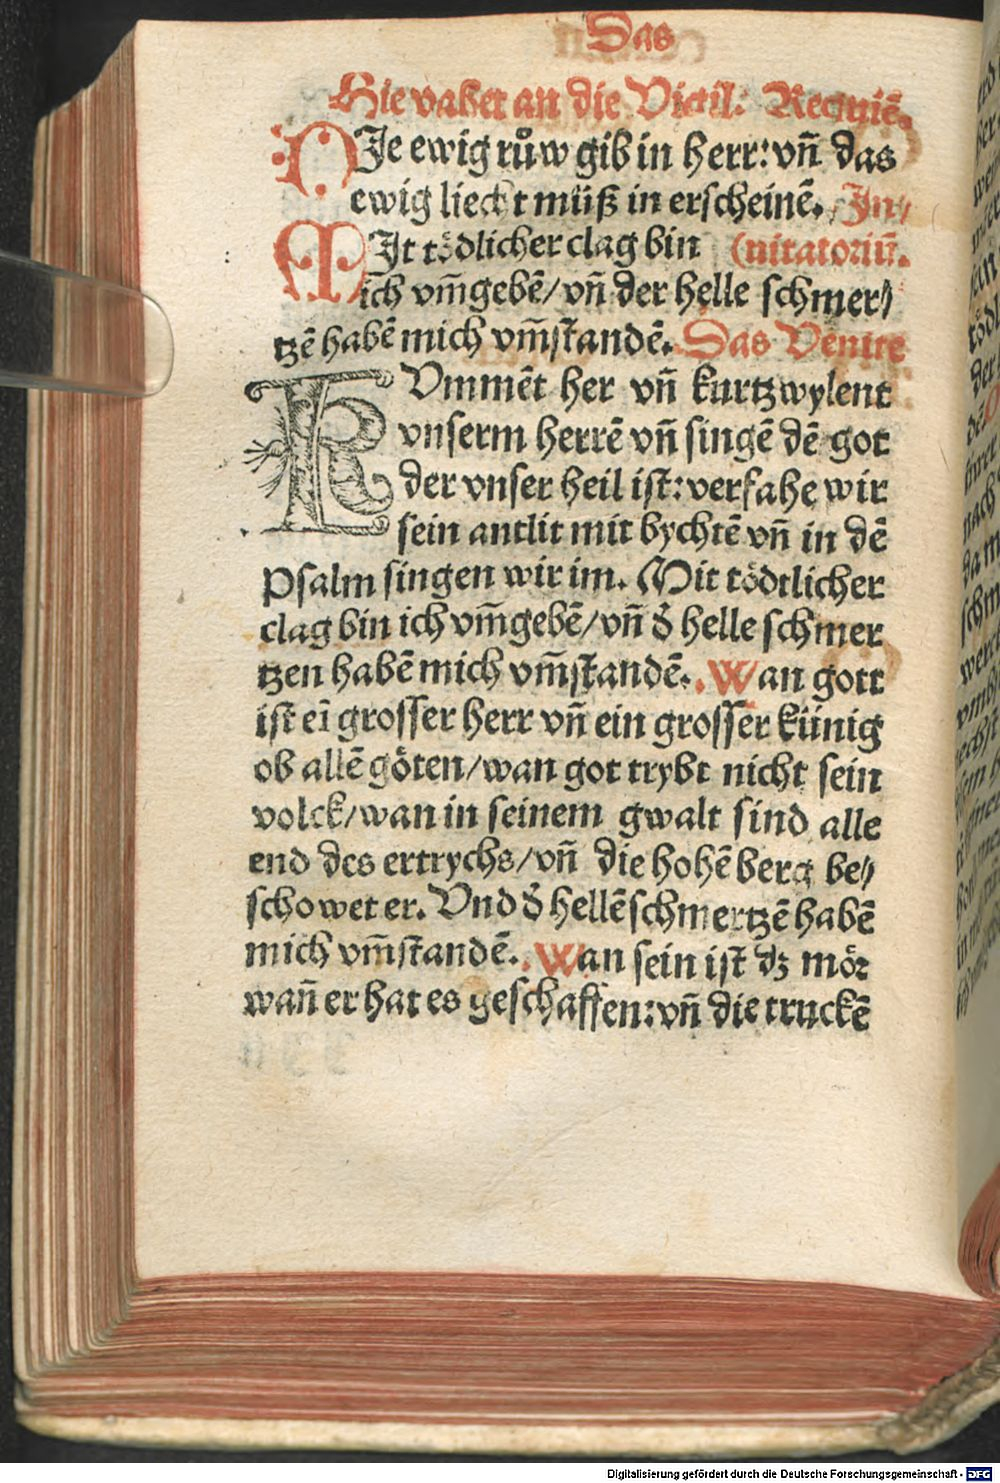 Das
Hie vahet an die Vigil: Requiē.
DJe ewig růw gib in herr: vñ das
ewig liecht müß in erscheinē. In/
MJt tödlicher clag bin (uitatoriū.
ich vm̄gebē/ vñ der helle schmer/
tzē habē mich vm̄standē. Das Venite
KVmmēt her vñ kurtzwylent
vnserm herrē vñ singē dē got
der vnser heil ist: verfahe wir
sein antlit mit bychtē vñ in dē
Psalm singen wir im. Mit tödtlicher
clag bin ich vm̄gebē/ vñ d̄ helle schmer
tzen habē mich vm̄standē. Wan gott
ist eī grosser herr vñ ein grosser künig
ob allē göten/ wan got trybt nicht sein
volck/ wan in seinem gwalt sind alle
end des ertrychs/ vñ die hohē berg be/
schowet er. Vnd d̄ hellē schmertzē habē
mich vm̄standē. Wan sein ist dz mör
wañ er hat es geschaffen: vñ die truckē
Digitalisierung gefördert durch die Deutsche Forschungsgemeinschaft - DFG